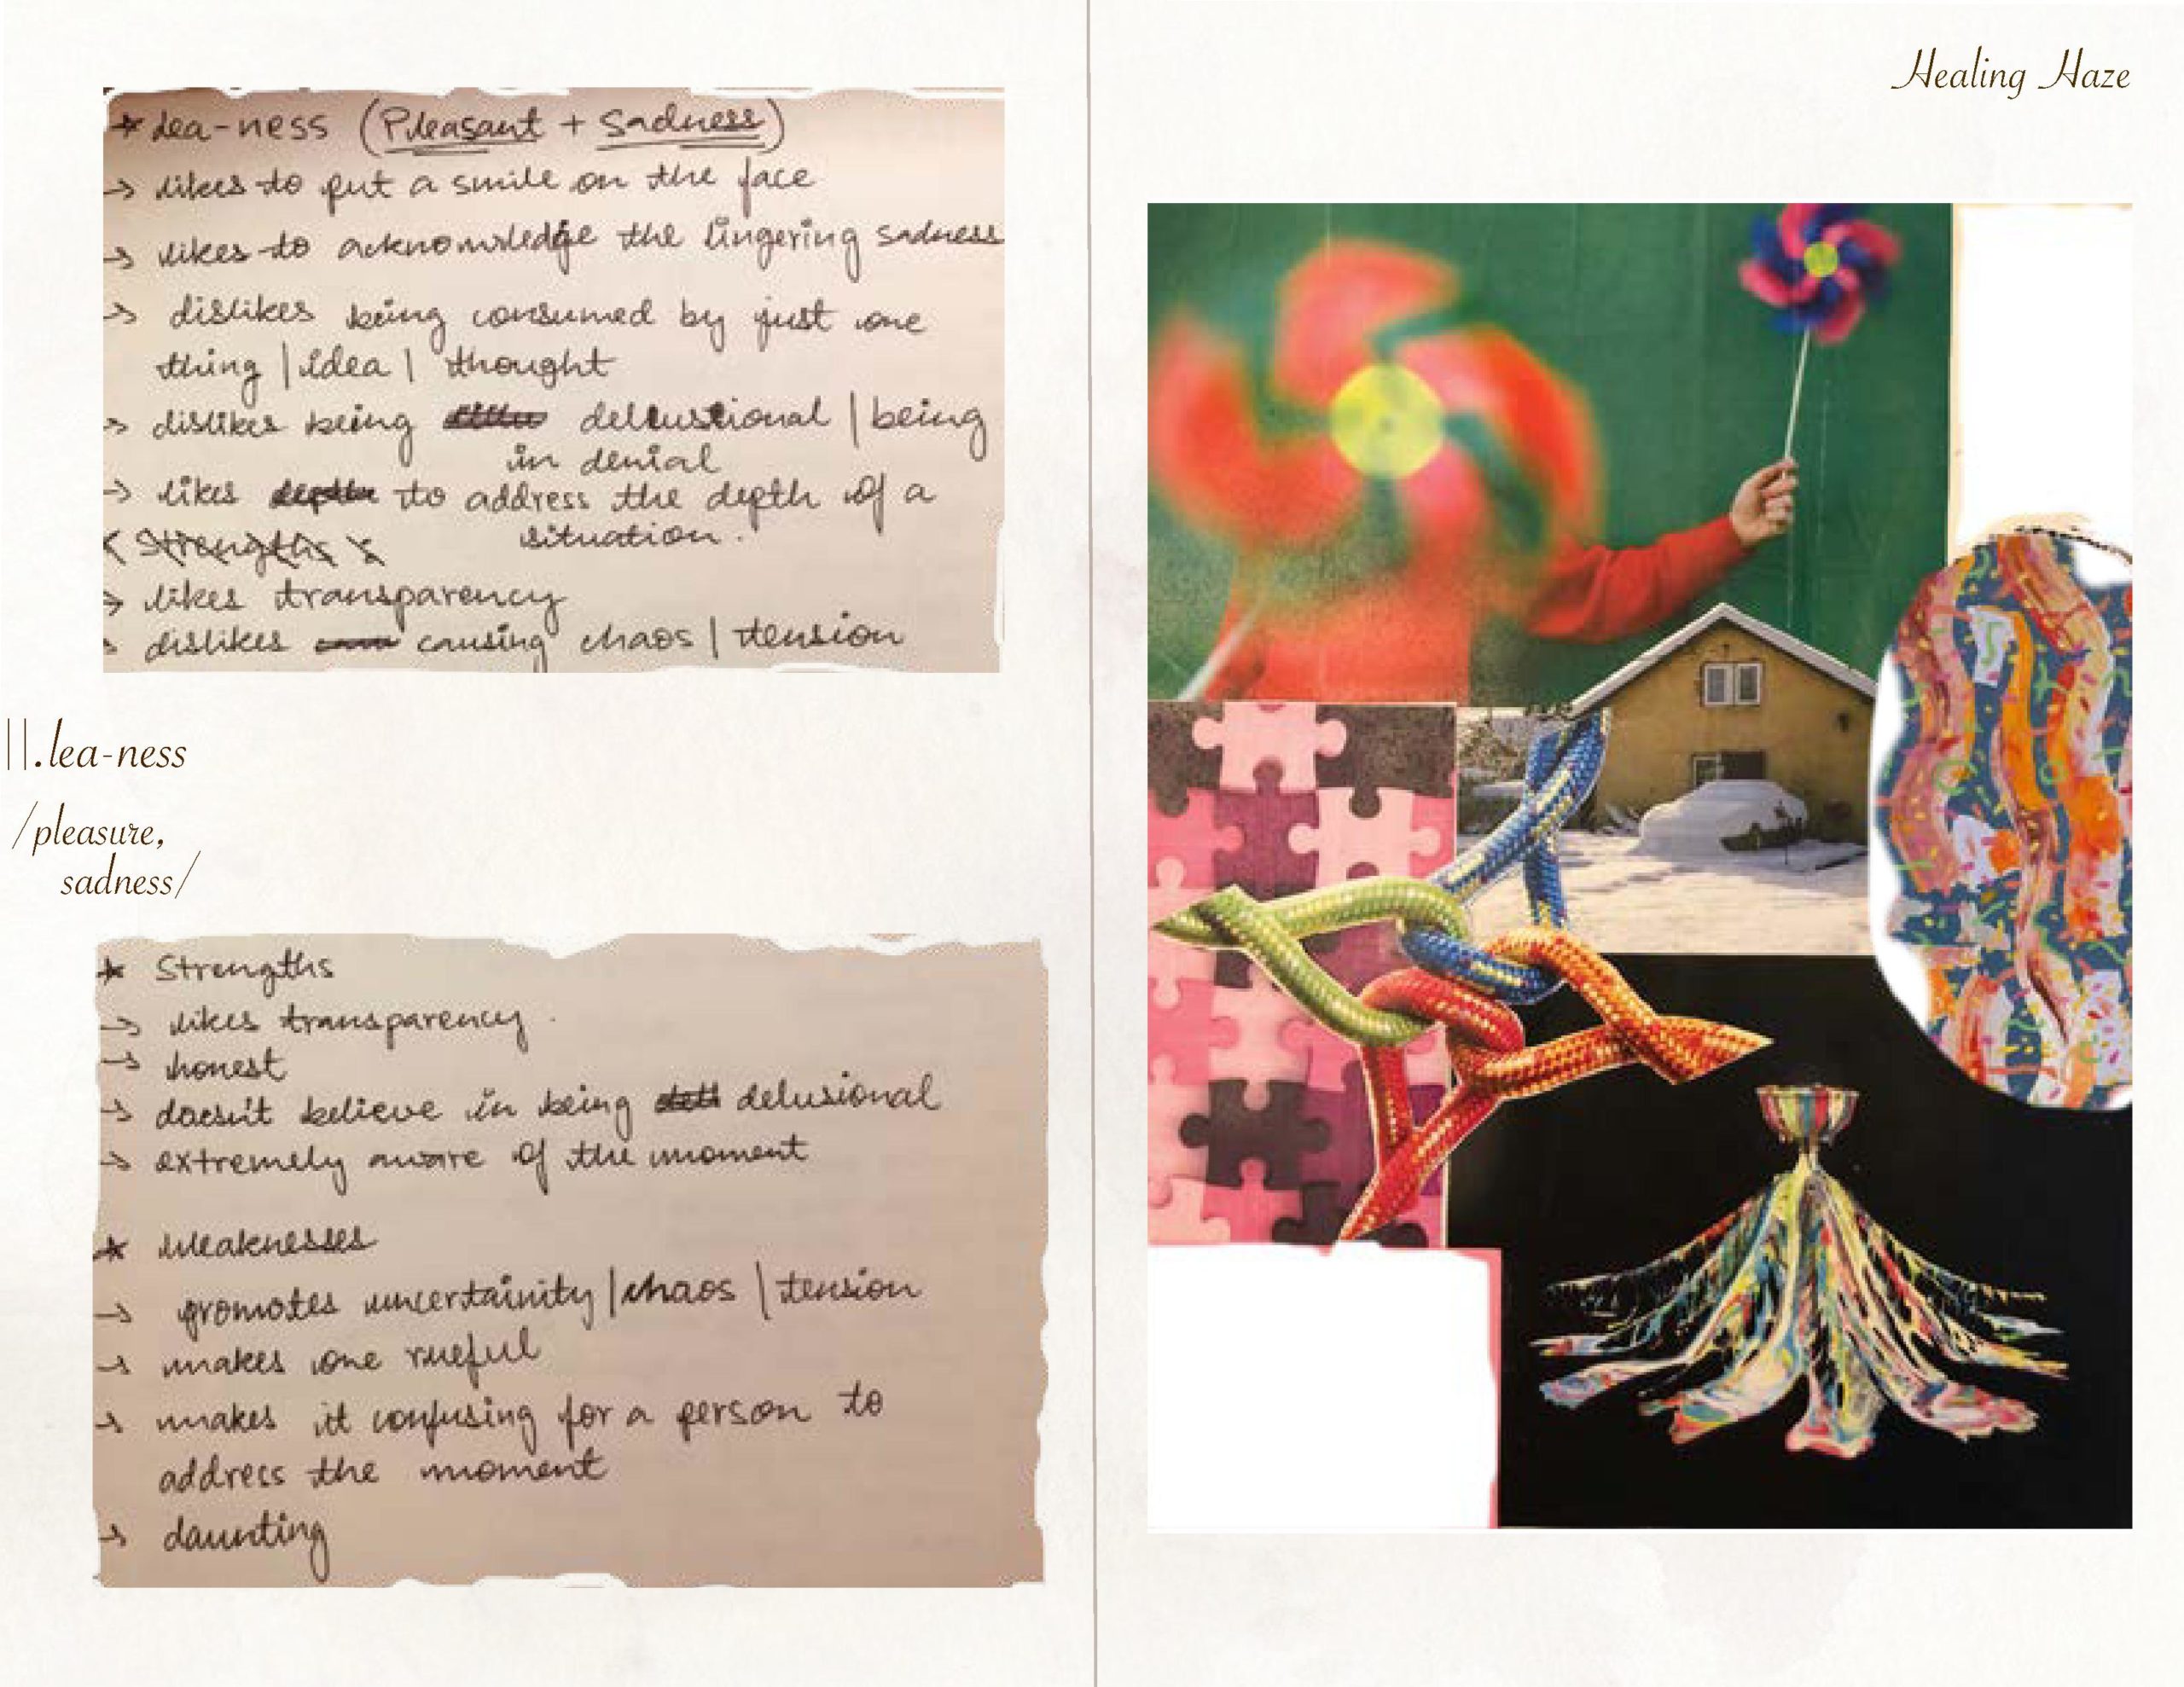 * lea-ness (Pleasant + Sadness)
→ likes to put a smile on the face
→ likes to acknowledge the lingering sadness
→ dislikes being consumed by just one
thing | idea | thought
→ dislikes being delusional | being
in denial
→ likes depth to address the depth of a
situation.
x Strengths x
→ likes transparency
→ dislikes causing chaos | tension
||.lea-ness
/pleasure,
sadness/
* Strengths
→ likes transparency.
→ honest
→ doesn't believe in being delusional
→ extremely aware of the moment
* Weaknesses
→ promotes uncertainity | chaos | tension
→ makes one rueful
→ makes it confusing for a person to
address the moment
→ daunting
Healing Haze